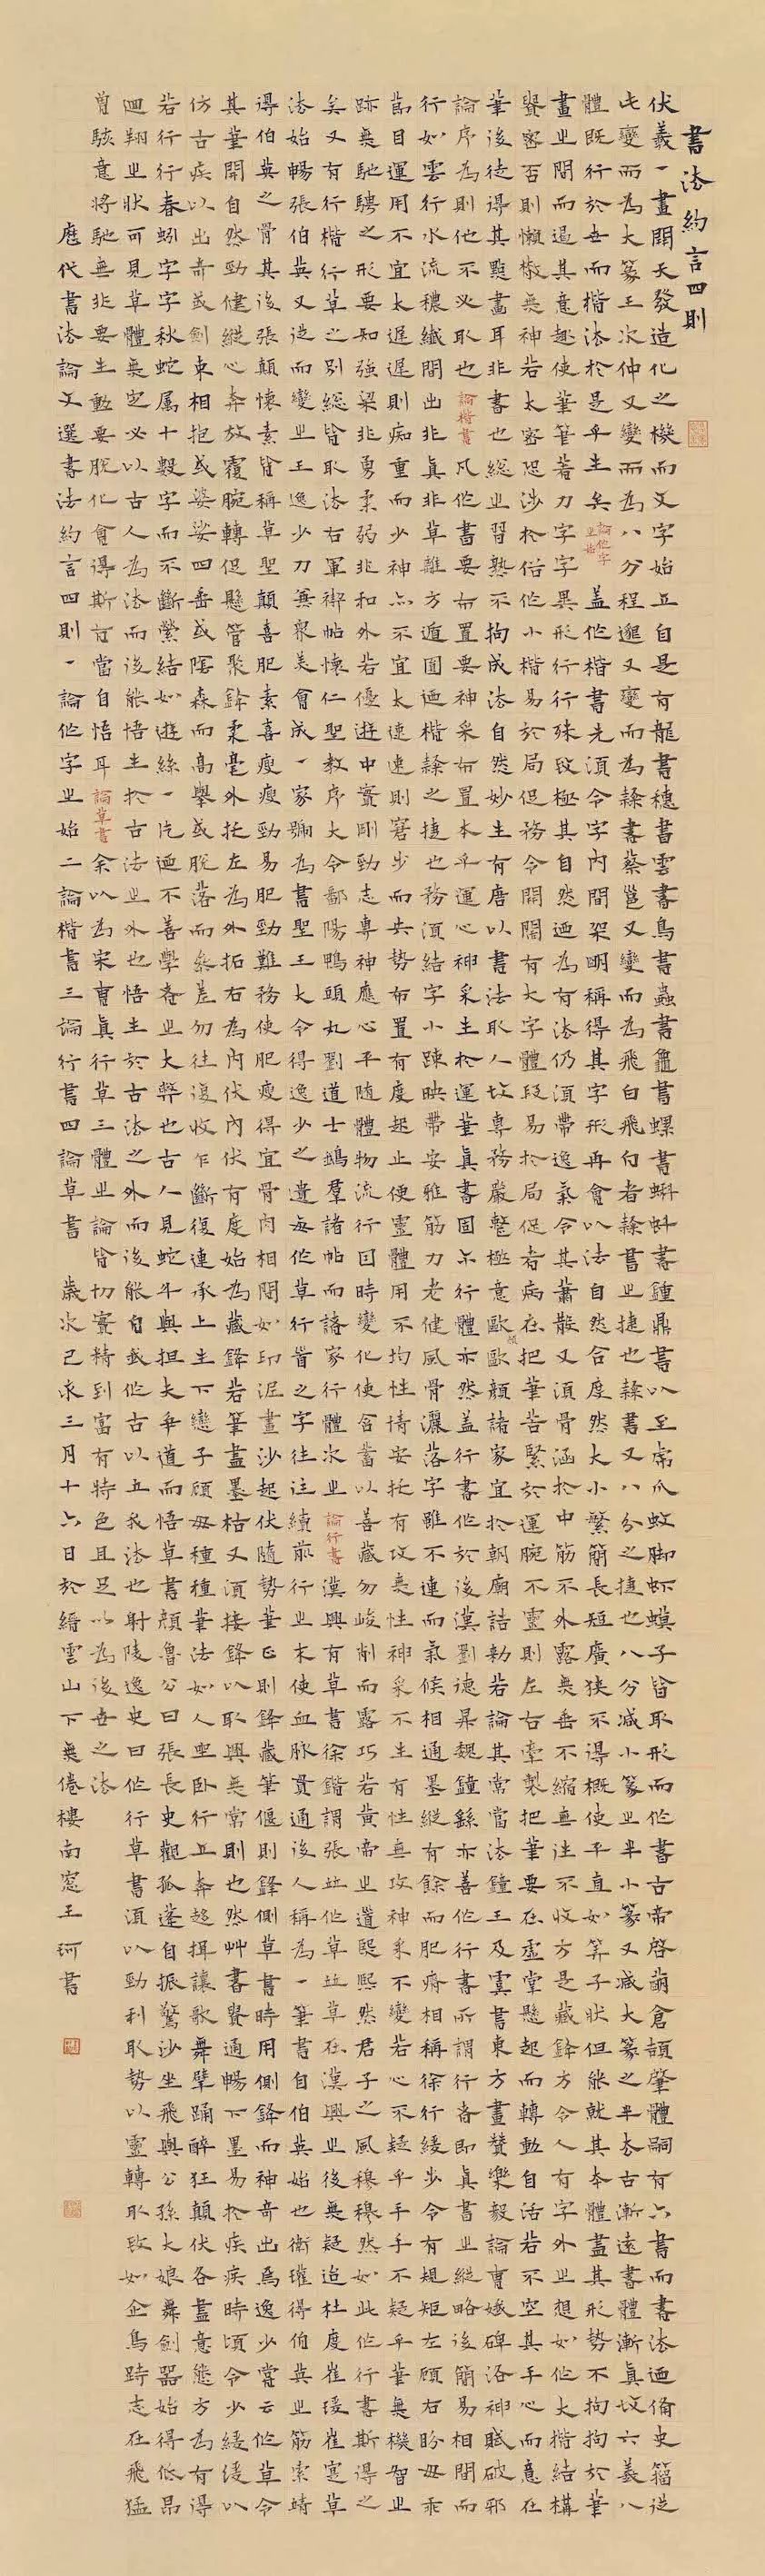 書法約言四則
伏羲一畫開天發造化之機而文字始立自是有龍書穗書雲書鳥書蟲書龜書螺書蝌蚪書鍾鼎書以至虎爪蚊脚蝦蟆子皆取形而作書古帝啓萌倉頡肇體嗣有六書而書法迺備史籀從
此變而為大篆王次仲又變而為八分程邈又變而為隸書蔡邕又變而為飛白飛白者隸書之捷也隸書又八分之捷也八分減小篆之半小篆又減大篆之半去古漸遠書體漸真故六義八
體既行於世而楷法於是乎生矣論作字之始蓋作楷書先須令字內間架明稱得其字形再會以法自然合度然大小繁簡長短廣狹不得概使平直如筭子狀但能就其本體盡其形勢不拘拘於筆
畫之間而遏其意趣使筆筆著力字字異形行行殊致極其自然迺為有法仍須帶逸氣令其蕭散又須骨涵於中筋不外露無垂不縮無往不收方是藏鋒方令人有字外之想如作大楷結構
貴密否則懶散無神若太密恐涉於俗作小楷易於局促務令開闊有大字體段易於局促者病在把筆苦緊於運腕不靈則左右牽掣把筆要在虛掌懸起而轉動自活若不空其手心而意在
筆後徒得其點畫耳非書也總之習熟不拘成法自然妙生有唐以書法取人故專務嚴整極意歐顏歐顏諸家宜於朝廟誥勅若論其常當法鍾王及虞書東方畫贊樂毅論曹娥碑洛神賦破邪
論序為則他不必取也論楷書凡作書要布置要神采布置本乎運心神采生於運筆真書固尒行體亦然蓋行書作於後漢劉德昇魏鍾繇亦善作行書所謂行者即真書之縱略後簡易相間而
行如雲行水流穠纖間出非真非草離方遁圓迺楷隸之捷也務須結字小疎映帶安雅筋力老健風骨灑落字雖不連而氣候相通墨縱有餘而肥瘠相稱徐行緩步令有規矩左顧右盼毋乖
節目運用不宜太遲遲則痴重而少神亦不宜太速速則窘步而失勢布置有度起止便靈體用不均性情安托有攻無性神采不生有性無攻神采不變若心不疑乎手手不疑乎筆無機智之
跡無馳騁之形要知強梁非勇柔弱非和外若優遊中實剛勁志專神應心平隨體物流行因時變化使含蓄以善藏勿峻削而露巧若黃帝之遺熙熙然君子之風穆穆然如此作行書斯得之
矣又有行楷行草之別總皆取法右軍禊帖懷仁聖教序大令鄱陽鴨頭丸劉道士鵝羣諸帖而諸家行體次之論行書漢興有草書徐鍇謂張並作草並草在漢興之後無疑迨杜度崔瑗崔寔草
法始暢張伯英又從而變之王逸少力兼衆美會成一家號為書聖王大令得逸少之遺每作草行首之字往往續前行之末使血脉貫通後人稱為一筆書自伯英始也衛瓘得伯英之筋索靖
得伯英之骨其後張顛懷素皆稱草聖顛喜肥素喜瘦瘦勁易肥勁難務使肥瘦得宜骨肉相間如印泥畫沙起伏隨勢筆正則鋒藏筆偃則鋒側草書時用側鋒而神奇出焉逸少嘗云作草令
其筆開自然勁健縱心奔放覆腕轉促懸管聚鋒柔毫外托左為外拓右為內伏內伏有度始為藏鋒若筆盡墨枯又須接鋒以取興無常則也然艸書貴通暢下墨易於疾疾時頃令少緩緩以
仿古疾以出奇或劍束相抱或婆娑四垂或陰森而高舉或脫落而參差勿往復收乍斷復連承上生下戀子顧母種種筆法如人坐卧行立奔趨揖讓歌舞擘踊醉狂顛伏各盡意態方為有得
若行行春蚓字字秋蛇属十數字而不斷縈結如遊絲一片迺不善學者之大弊也古人見蛇斗與担夫爭道而悟草書顏魯公曰張長史觀孤蓬自振驚沙坐飛與公孫大娘舞劍器始得低昂
迴翔之狀可見草體無定必以古人為法而後能悟生於古法之外也悟生於古法之外而後能自我作古以立我法也射陵逸史曰作行草書須以勁利取勢以靈轉取致如企鳥跱志在飛猛
獸駭意將馳無非要生動要脫化會得斯旨當自悟耳論草書余以為宋曹真行草三體之論皆切實精到富有特色且足以為後世之法
歷代書法論文選書法約言四則一論作字之始二論楷書三論行書四論草書 歲次己未三月十六日於縉雲山下無倦樓南窓王珂書